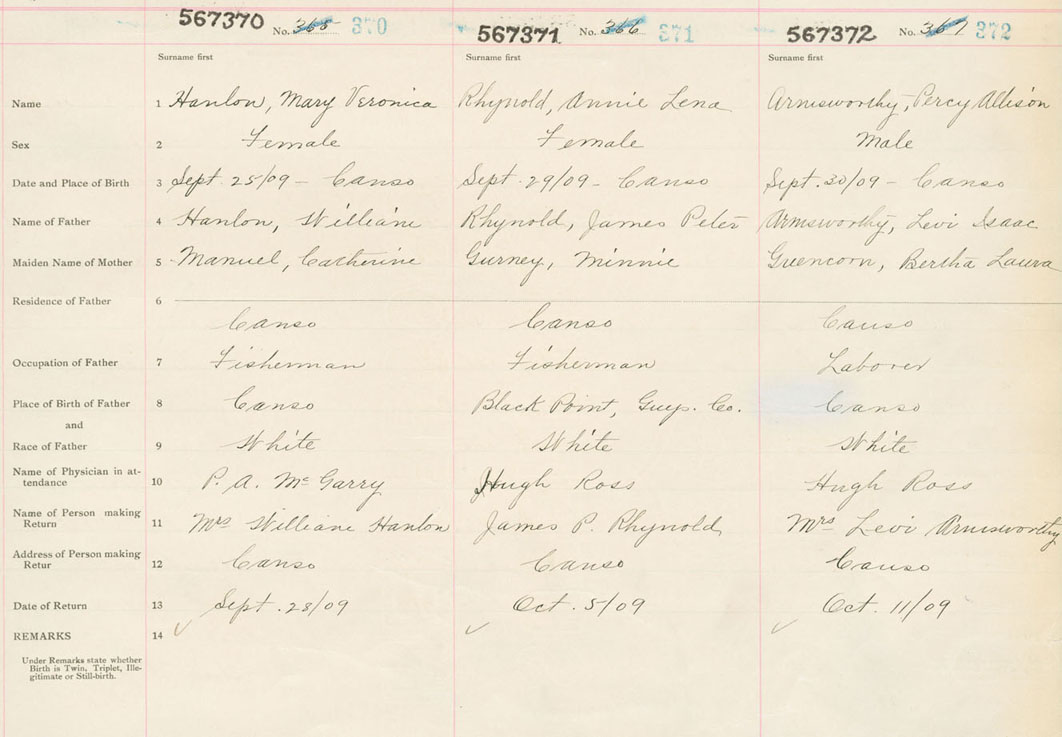 567370 No. 365 370 567371 No. 366 371 567372 No. 367 372
Surname first Surname first Surname first
Name 1 Hanlon, Mary Veronica Rhynold, Annie Lena Armsworthy, Percy Allison
Sex 2 Female Female Male
Date and Place of Birth 3 Sept. 25/09 - Canso Sept. 29/09 - Canso Sept. 30/09 - Canso
Name of Father 4 Hanlon, William Rhynold, James Peter Armsworthy, Levi Isaac
Maiden Name of Mother 5 Manuel, Catherine Gurney, Minnie Guencorn, Bertha Laura
Residence of Father 6
Canso Canso Canso
Occupation of Father 7 Fisherman Fisherman Laborer
Place of Birth of Father 8 Canso Black Point, Guys. Co. Canso
and
Race of Father 9 White White White
Name of Physician in at-
tendance 10 P. A. McGarry Hugh Ross Hugh Ross
Name of Person making
Return 11 Mrs William Hanlon James P. Rhynold Mrs Levi Armsworthy
Address of Person making
Retur 12 Canso Canso Canso
Date of Return 13 Sept. 28/09 Oct. 5/09 Oct. 11/09
REMARKS 14
Under Remarks state whether
Birth is Twin, Triplet, Ille-
gitimate or Still-birth.